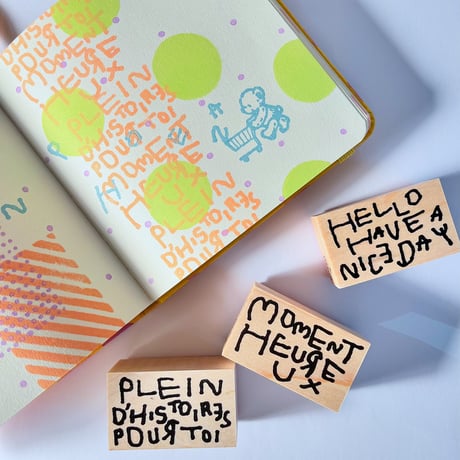 D'HISTOIRES
POUR TOI
MOMENT
HEURE
UX
PLEIN
D'HISTOIRES
POUR TOI
MOMENT
HEURE
UX
PLEIN
D'HISTOIRES
POUR TOI
HELLO
HAVE A
NICE DAY
MOMENT
HEURE
UX
PLEIN
D'HISTOIRES
POUR TOI